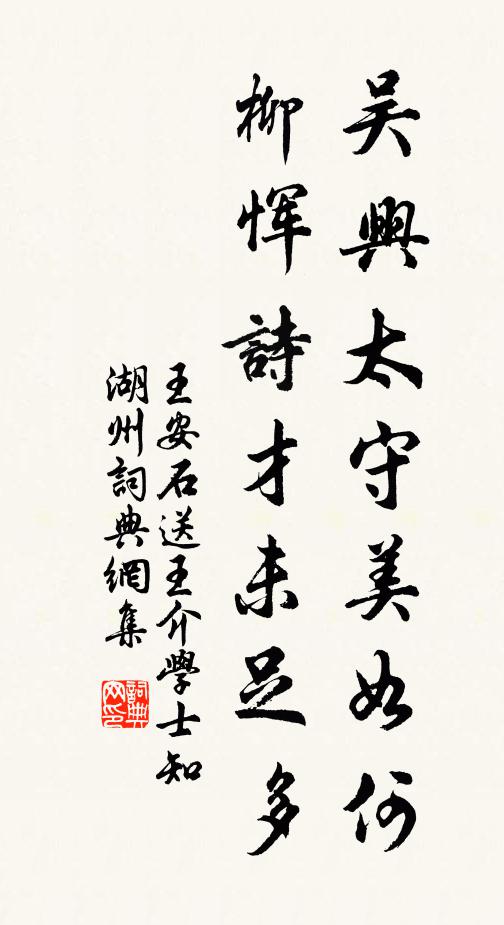 吴興太守美如何
柳惲詩才未足多
王安石送王介學士知
湖州詞典網集
詞典
网印